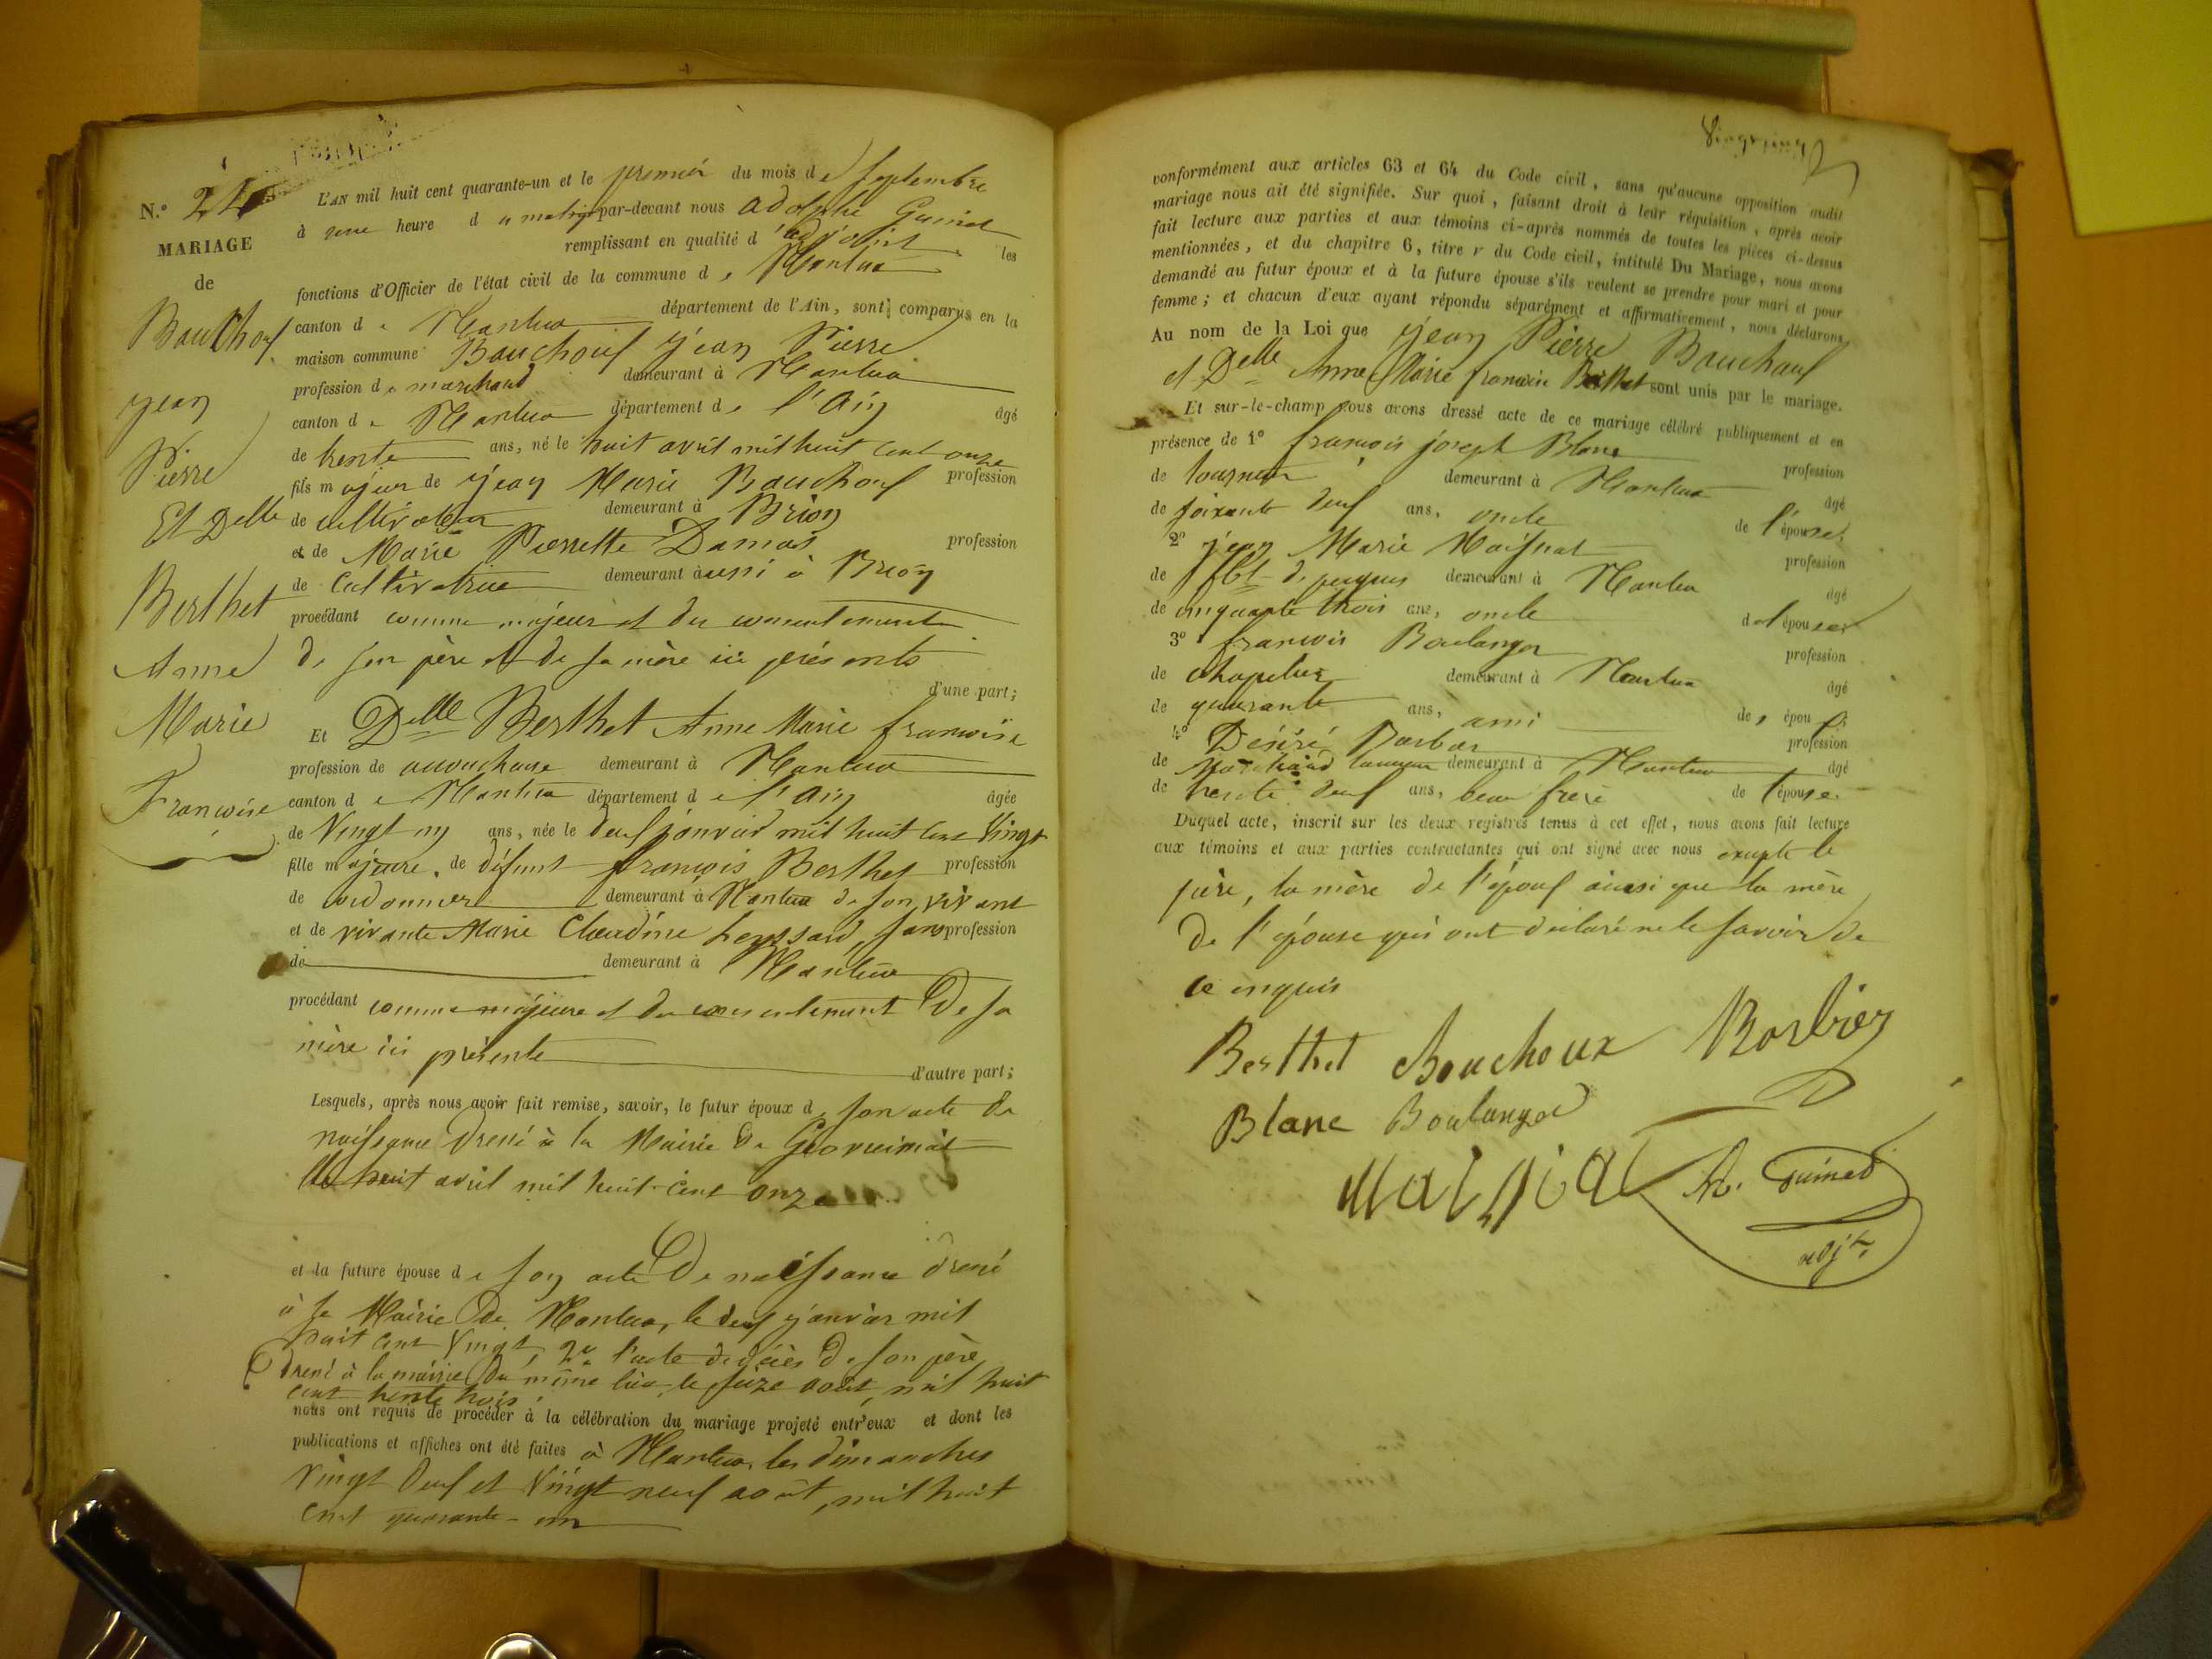 N.º 24
MARIAGE
de
Bauchouf
jean
Pierre
Et Delle
Berthet
Anne
Marie
Françoise
L'AN mil huit cent quarante-un et le premier du mois de septembre
à heure du matin par-devant nous adolphe Guinet
remplissant en qualité d'adjoint les
fonctions d'Officier de l'état civil de la commune de Nantua
canton de Nantua département de l'Ain, sont comparus en la
maison commune Bauchouf jean Pierre
profession de marchand demeurant à Nantua
canton de Nantua département de l'ain âgé
de trente ans, né le huit avril mil huit cent onze
fils majeur de jean Marie Bauchouf profession
de cultivateur demeurant à Brion
et de Marie Pierrette Damas profession
de Cultivatrice demeurant aussi à Brion
procédant comme majeur et du consentement
de son père et de sa mère ici présents
d'une part;
Et Delle Berthet Anne Marie françoise
profession de accoucheuse demeurant à Nantua
canton de Nantua département de l'ain âgée
de Vingt un ans, née le deux janvier mil huit cent Vingt
fille majeure de défunt françois Berthet profession
de cordonnier demeurant à Nantua de son vivant
et de vivante Marie Claudine sans profession
de demeurant à Nantua
procédant comme majeure et du consentement De sa
mère ici présente
d'autre part;
Lesquels, après nous avoir fait remise, savoir, le futur époux de son acte de
naissance dressé à la Mairie de
le huit avril mil huit cent onze
et la future épouse de son acte De naissance dressé
à la Mairie De Nantua, le deux janvier mil
huit cent Vingt, 2º l'acte de décès De son père
dressé à la mairie du même lieu le seize août mil huit
cent trente trois
nous ont requis de procéder à la célébration du mariage projeté entr'eux et dont les
publications et affiches ont été faites à Nantua, les dimanches
Vingt deux et Vingt neuf août, mil huit
cent quarante-un
conformément aux articles 63 et 64 du Code civil, sans qu'aucune opposition audit
mariage nous ait été signifiée. Sur quoi, faisant droit à leur réquisition, après avoir
fait lecture aux parties et aux témoins ci-après nommés de toutes les pièces ci-dessus
mentionnées, et du chapitre 6, titre v du Code civil, intitulé Du Mariage, nous avons
demandé au futur époux et à la future épouse s'ils veulent se prendre pour mari et pour
femme; et chacun d'eux ayant répondu séparément et affirmativement, nous déclarons
Au nom de la Loi que jean Pierre Bauchouf
et Delle Anne Marie françoise Berthet sont unis par le mariage.
Et sur-le-champ nous avons dressé acte de ce mariage célébré publiquement et en
présence de 1º françois joseph Blanc profession
de tourneur demeurant à Nantua âgé
de soixante deux ans, oncle de l'épouse
2º jean Marie profession
de fbt de peignes demeurant à Nantua âgé
de cinquante trois ans, oncle de l'épouse
3º françois Boulanger profession
de chapelier demeurant à Nantua âgé
de quarante ans, ami de épou
4º Désiré Barbier profession
de Marchand tanneur demeurant à Nantua âgé
de trente deux ans, beau frère de l'épouse.
Duquel acte, inscrit sur les deux registres tenus à cet effet, nous avons fait lecture
aux témoins et aux parties contractantes qui ont signé avec nous excepté le
père, la mère de l'époux ainsi que la mère
De l'épouse qui ont déclaré ne le savoir de
ce enquis
Berthet Bouchoux Barbier
Blanc Boulanger
A. Guinet
adjt